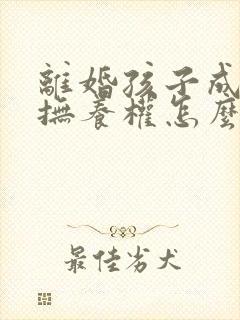 離婚孩子成
撫養權怎麼
最佳劣犬